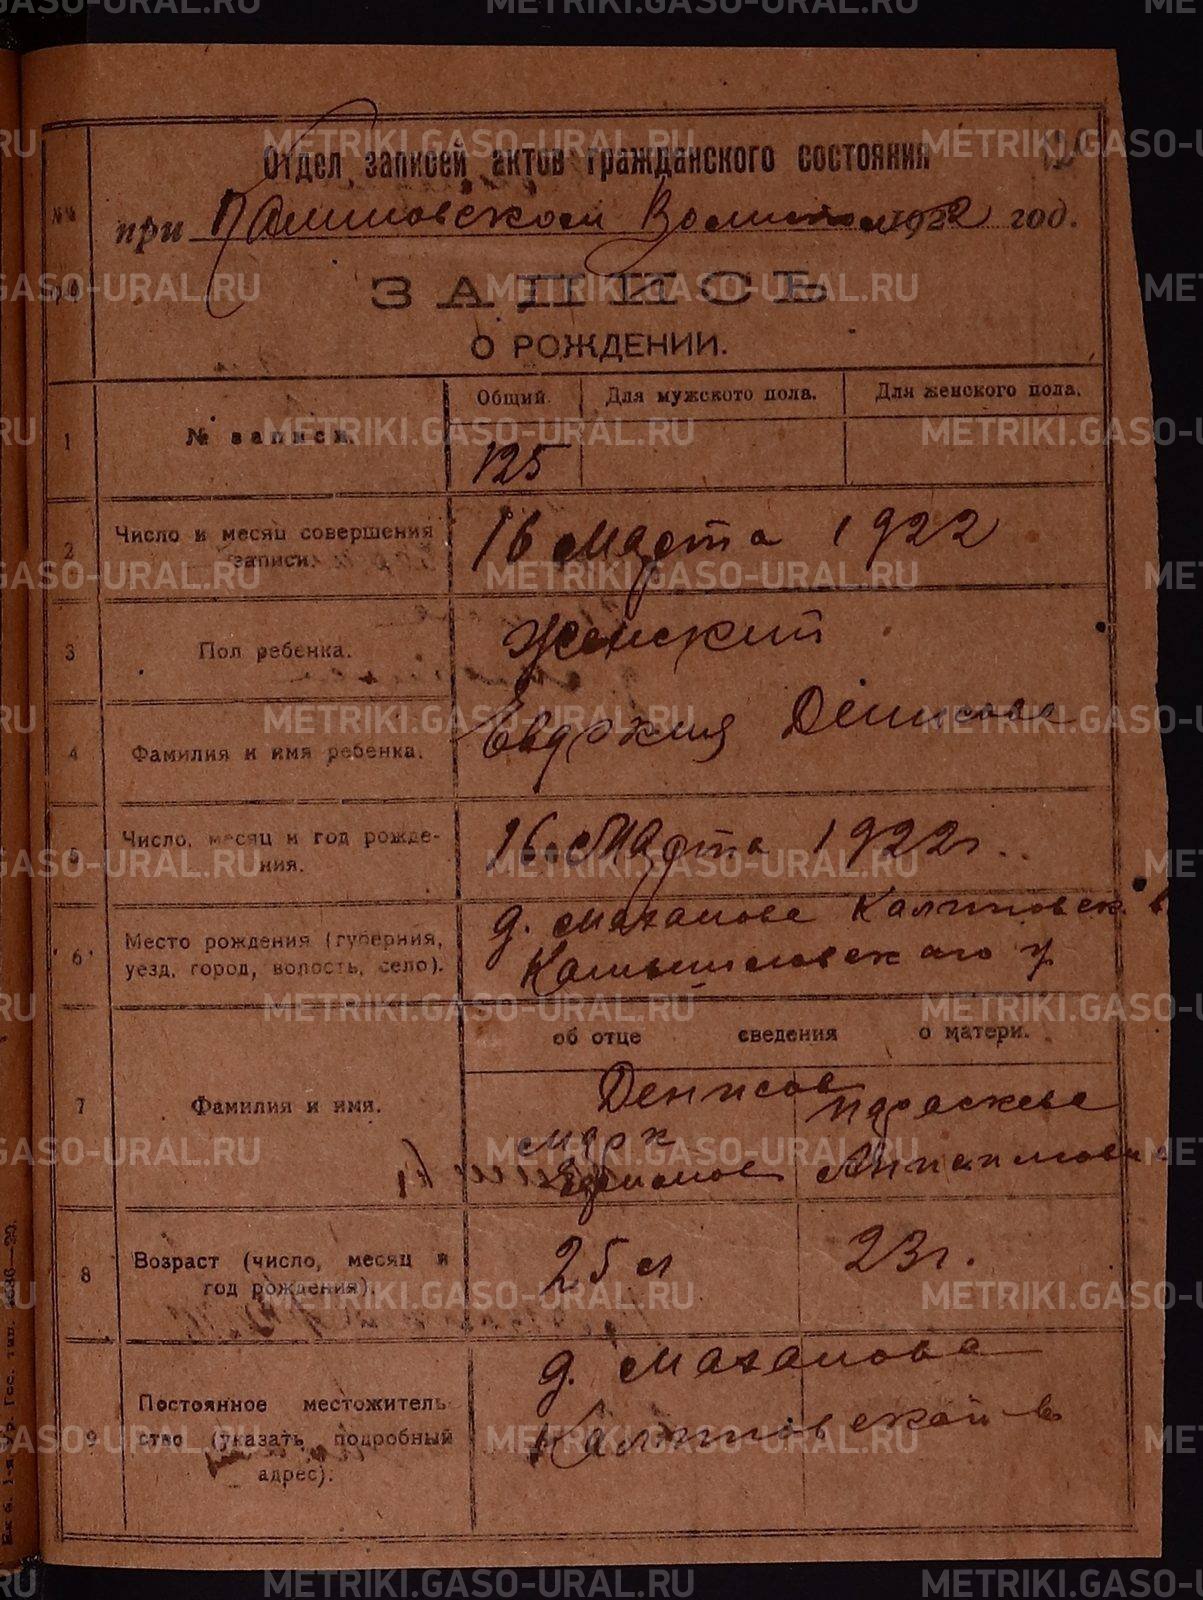 Отдел записей актов гражданского состояния
при Калиновском Волисполк 1922 год.
ЗАПИСЬ
О РОЖДЕНИИ.
Общий. Для мужского пола. Для женского пола.
1 № записи. 125
2 Число и месяц совершения записи. 16 Марта 1922
3 Пол ребенка. Женский
4 Фамилия и имя ребенка. Евдокия Денисова
5 Число, месяц и год рожде-
ния. 16 Марта 1922 г.
6 Место рождения (губерния, д. Калиновск. в
уезд, город, волость, село). Камышловского у
об отце сведения о матери.
7 Фамилия и имя. Денисов
Марк Параскева
8 Возраст (число, месяц и год рождения). 25 л 23 г.
9 Постоянное местожитель-
ство (указать подробный
адрес). д.
Калиновской в
METRIKI.GASO-URAL.RU